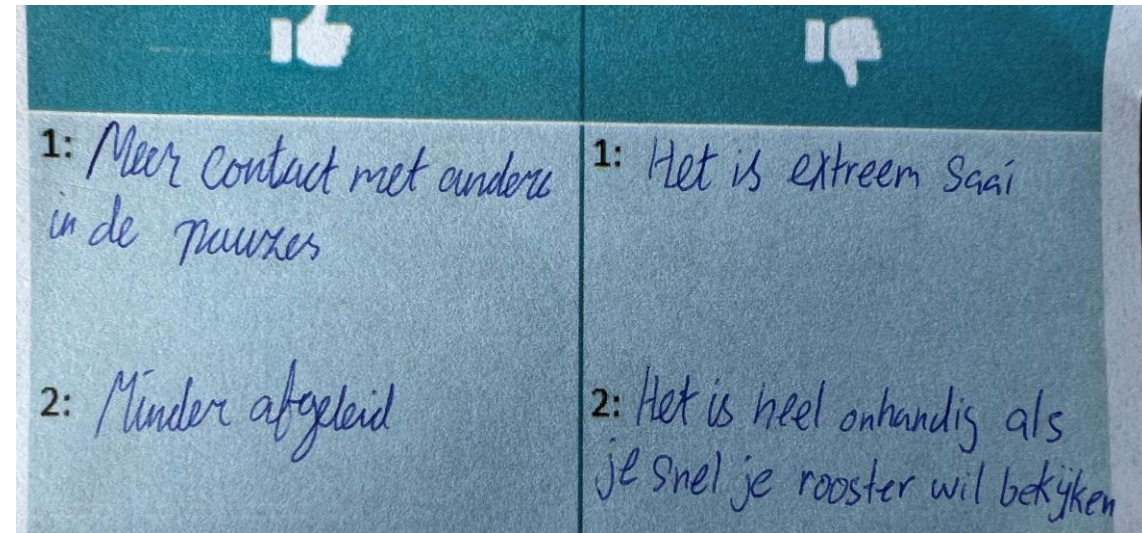 1: Meer contact met andere
in de pauzes
2: Minder afgeleid
1: Het is extreem saai
2: Het is heel onhandig als
je snel je rooster wil bekijken